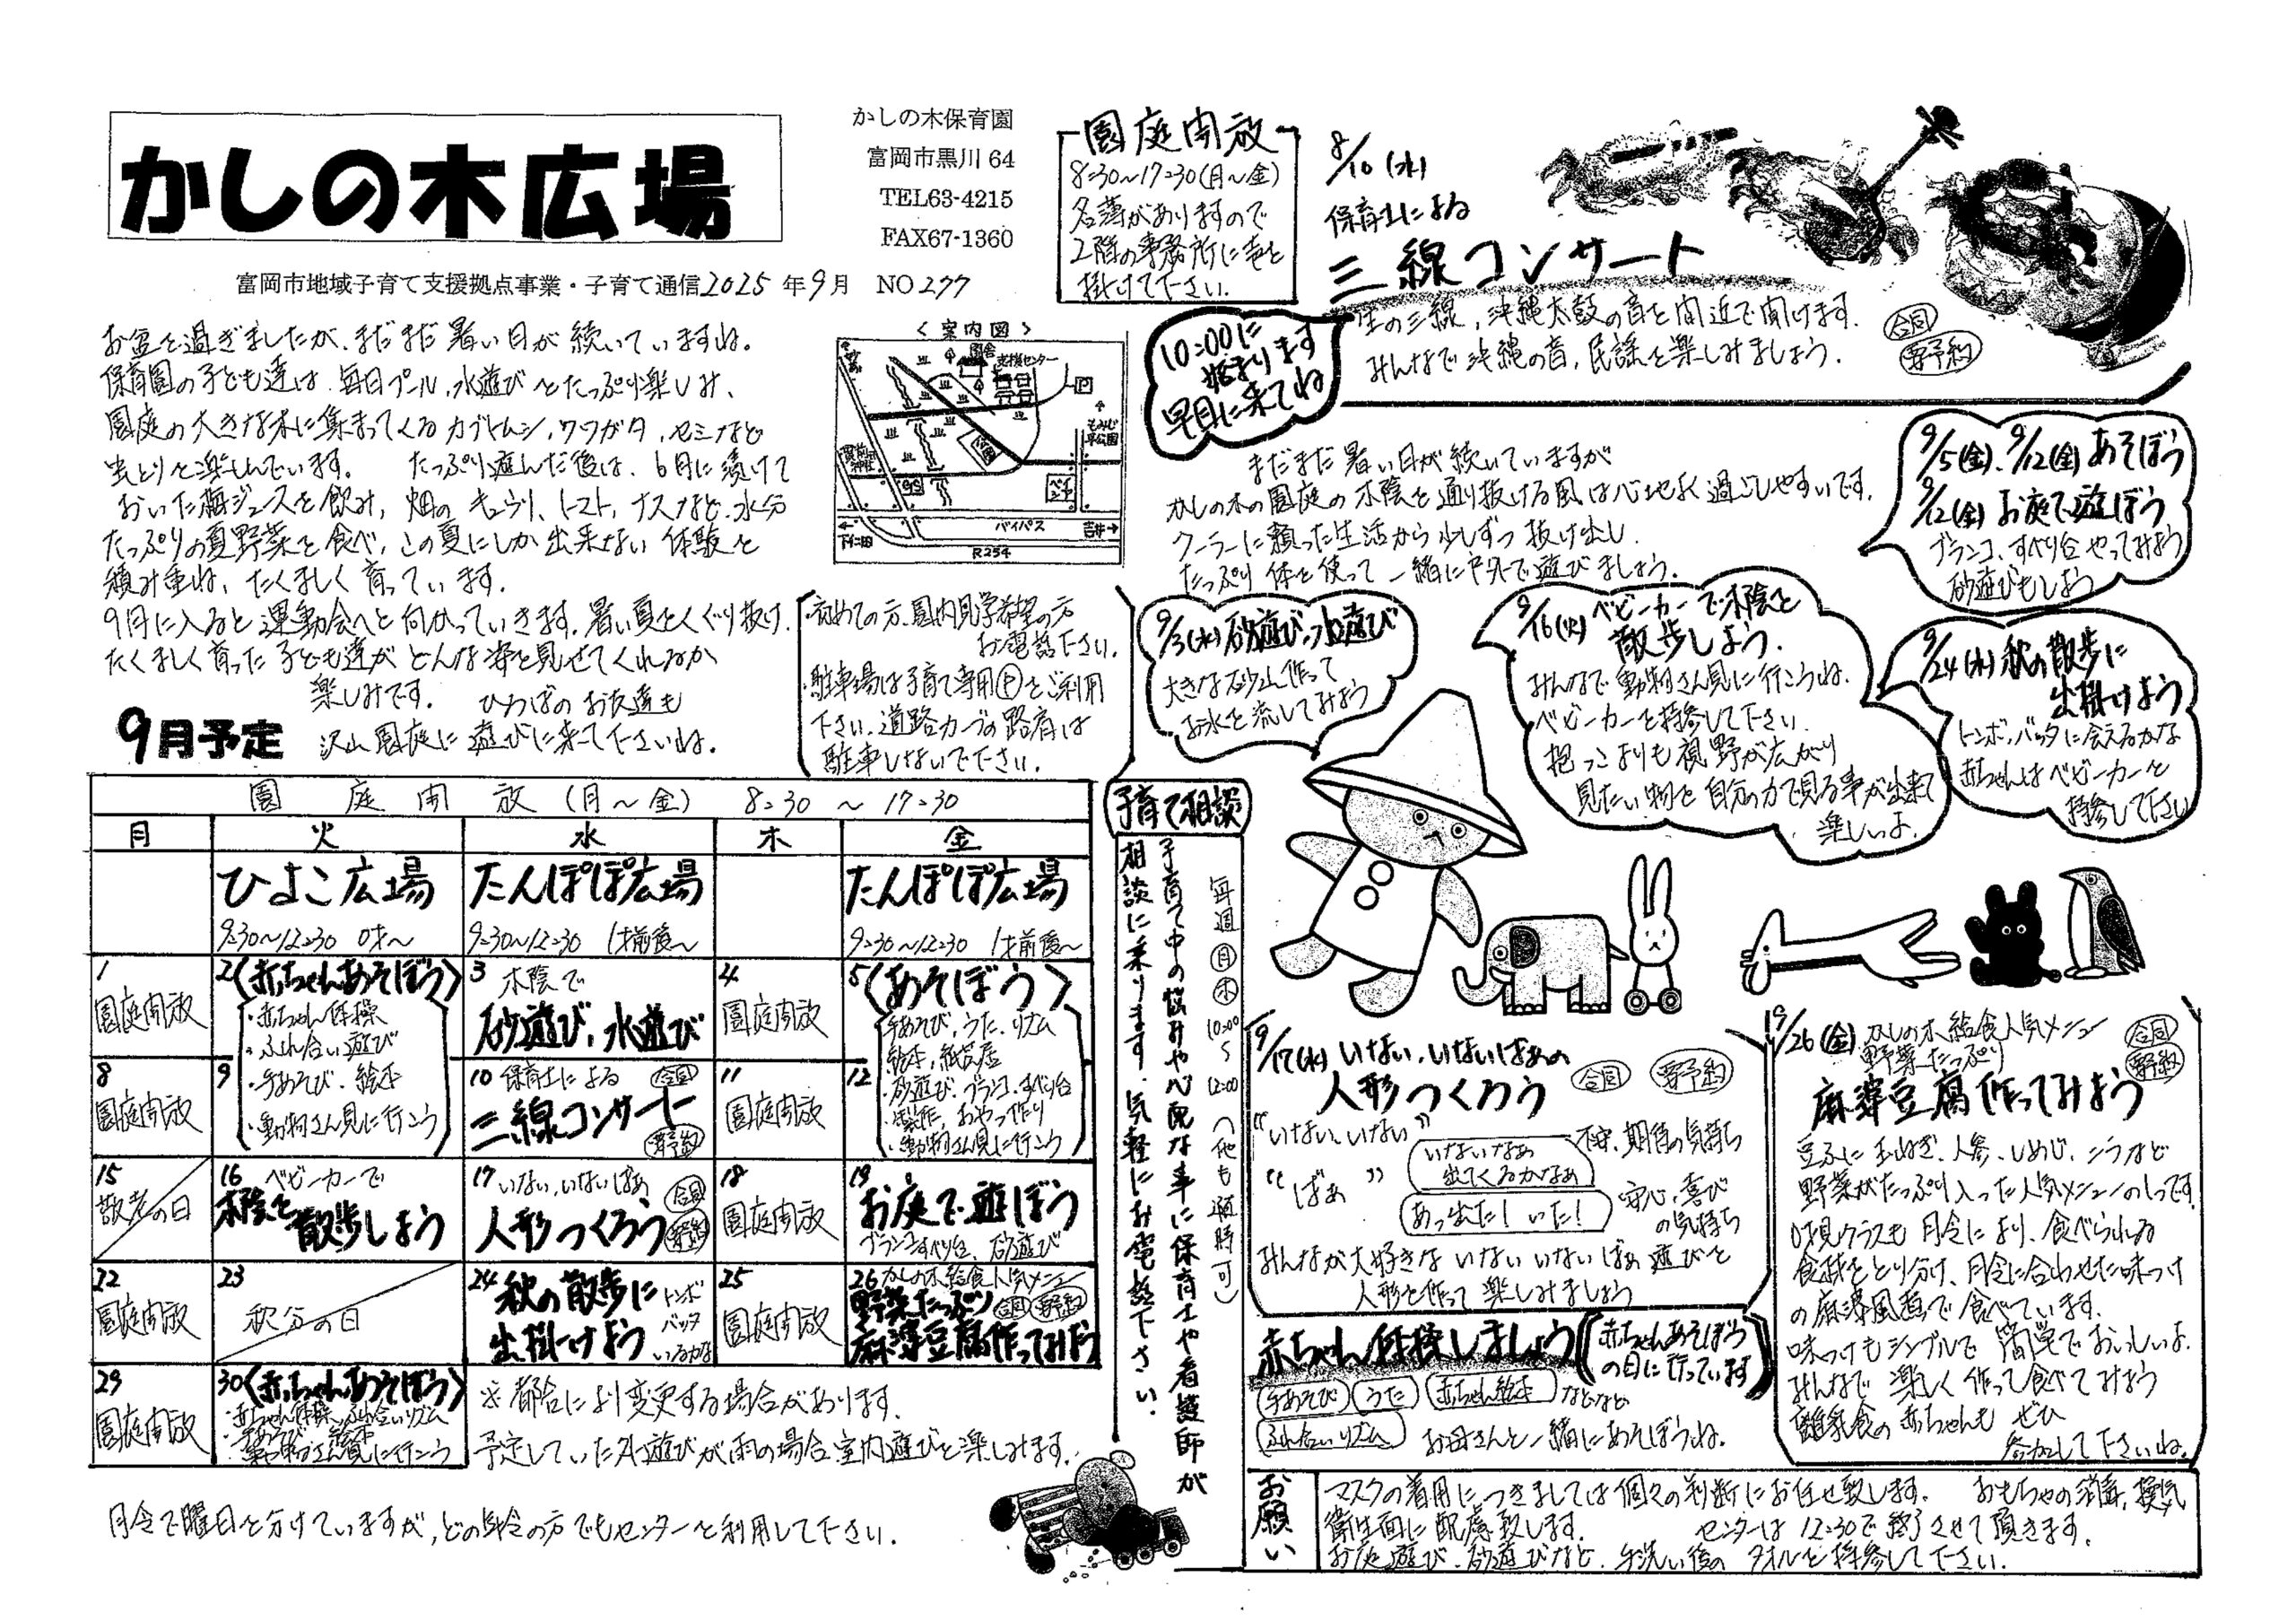 かしの木広場
かしの木保育園
富岡市黒川 64
TEL63-4215
FAX67-1360
富岡市地域子育て支援拠点事業・子育て通信2025 年9月 NO277
お盆を過ぎましたが、まだまだ暑い日が続いていますね。
保育園の子ども達は毎日プール、水遊びをたっぷり楽しみ、
園庭の大きな木に集まってくるカブトムシ、クワガタ、セミなど
虫とりを楽しんでいます。 たっぷり遊んだ後は、6月に漬けて
おいた梅ジュースを飲み、畑のキュウリ、トマト、ナスなど水分
たっぷりの夏野菜を食べ、この夏にしか出来ない体験を
積み重ね、たくましく育っています。
9月に入ると運動会へと向かっていきます。暑い夏をくぐり抜け
たくましく育った子ども達がどんな姿を見せてくれるか
楽しみです。 ひろばのお友達も
沢山園庭に遊びに来て下さいね。
<案内図>
園舎
支援センター
P
もみじ平公園
バイパス
下仁田
R254
吉井
・初めての方、園内見学希望の方
お電話下さい。
・駐車場は子育て専用Ⓟをご利用
下さい。道路カーブの路肩は
駐車しないで下さい。
9月予定
園庭開放(月～金) 8:30 ～ 17:30
月 火 水 木 金
ひよこ広場
9:30～12:30 0才～
たんぽぽ広場
9:30～12:30 1才前後～
たんぽぽ広場
9:30～12:30 1才前後～
1
園庭開放
2〈赤ちゃんあそぼう〉
・赤ちゃん体操
・ふれ合い遊び
・手あそび・絵本
・動物さん見に行こう
3 木陰で
砂遊び、水遊び
4
園庭開放
5〈あそぼう〉
手あそび、うた、リズム
絵本、紙芝居
砂遊び、ブランコ、すべり台
製作、おやつ作り
・動物さん見に行こう
8
園庭開放
9
10 保育士による 合同
三線コンサート
要予約
11
園庭開放
12
15
敬老の日
16 ベビーカーで
木陰を
散歩しよう
17 いない、いないばぁ 合同
人形つくろう 要予約
18
園庭開放
19
お庭で遊ぼう
ブランコ、すべり台、砂遊び
22
園庭開放
23
秋分の日
24 秋の散歩に
出掛けよう
トンボ
バッタ
いるかな
25
園庭開放
26 かしの木給食人気メニュー
野菜たっぷり 合同 要予約
麻婆豆腐作ってみよう
29
園庭開放
30〈赤ちゃんあそぼう〉
・赤ちゃん体操、ふれ合いリズム
・手あそび 絵本
・動物さん見に行こう
※都合により変更する場合があります。
予定していた外遊びが雨の場合、室内遊びを楽しみます。
月令で曜日を分けていますが、どの年令の方でもセンターを利用して下さい。
園庭開放
8:30～17:30(月～金)
名簿がありますので
2階の事務所に声を
掛けて下さい。
8/10(水)
保育士による
三線コンサート
生の三線、沖縄太鼓の音を間近で聞けます。 合同
みんなで沖縄の音、民謡を楽しみましょう。 要予約
10:00に
始まります
早目に来てね
まだまだ暑い日が続いていますが
かしの木の園庭の木陰を通り抜ける風は心地よく過ごしやすいです。
クーラーに頼った生活から少しずつ抜け出し
たっぷり体を使って一緒に戸外で遊びましょう。
9/5(金)、9/12(金)あそぼう
9/12(金)お庭で遊ぼう
ブランコ、すべり台やってみよう
砂遊びもしよう
9/3(水)砂遊び、水遊び
大きな砂山作って
お水を流してみよう
9/16(火)ベビーカーで木陰を
散歩しよう。
みんなで動物さん見に行こうね。
ベビーカーを持参して下さい。
抱っこよりも視野が広がり
見たい物を自分の力で見る事が出来て
楽しいよ。
9/24(水)秋の散歩に
出掛けよう
トンボ、バッタに会えるかな
赤ちゃんはベビーカーを
持参して下さい
子育て相談
毎週 月 木 10:00～12:00(他も随時可)
子育て中の悩みや心配な事に保育士や看護師が
相談に乗ります。気軽にお電話下さい。
9/17(水)いない、いないばぁの
人形つくろう 合同 要予約
“いない、いない”
いないなぁ
出てくるかなぁ
不安、期待の気持ち
“ばぁ”
あっ出た!いた!
安心、喜び
の気持ち
みんなが大好きないないいないばぁ遊びを
人形を作って楽しみましょう
赤ちゃん体操しましょう(赤ちゃんあそぼう
の日に行っています)
手あそび うた 赤ちゃん絵本 などなど
ふれ合いリズム お母さんと一緒にあそぼうね。
9/26(金)かしの木給食人気メニュー 合同
野菜たっぷり 要予約
麻婆豆腐作ってみよう
豆ふに玉ねぎ、人参、しめじ、ニラなど
野菜がたっぷり入った人気メニューの1つです
0才児クラスも月令により、食べられる
食材をとり分け、月令に合わせた味つけ
の麻婆風煮で食べています。
味つけもシンプルで簡単でおいしいよ。
みんなで楽しく作って食べてみよう
離乳食の赤ちゃんもぜひ
参加して下さいね。
お願い
マスクの着用につきましては個々の判断にお任せ致します。 おもちゃの消毒、換気
衛生面に配慮致します。 センターは12:30で終了させて頂きます。
お庭遊び、砂遊びなど、手洗い後のタオルを持参して下さい。